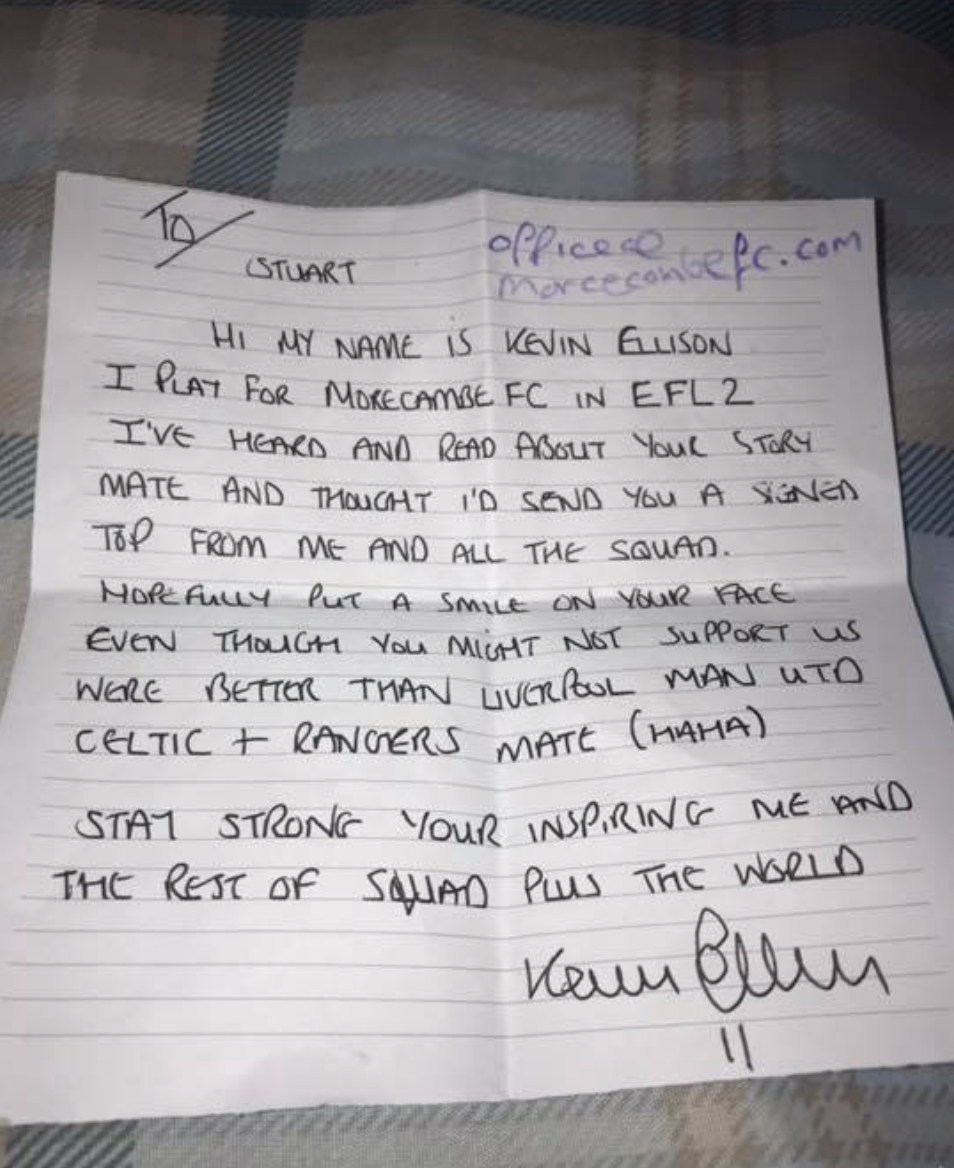 TO
STUART
office@
morecambefc.com
HI MY NAME IS KEVIN ELLISON
I PLAY FOR MORECAMBE FC IN EFL2
I'VE HEARD AND READ ABOUT YOUR STORY
MATE AND THOUGHT I'D SEND YOU A SIGNED
TOP FROM ME AND ALL THE SQUAD.
HOPEFULLY PUT A SMILE ON YOUR FACE
EVEN THOUGH YOU MIGHT NOT SUPPORT US
WERE BETTER THAN LIVERPOOL MAN UTD
CELTIC + RANGERS MATE (HAHA)
STAY STRONG YOUR INSPIRING ME AND
THE REST OF SQUAD PLUS THE WORLD
Kevin Ellison
11